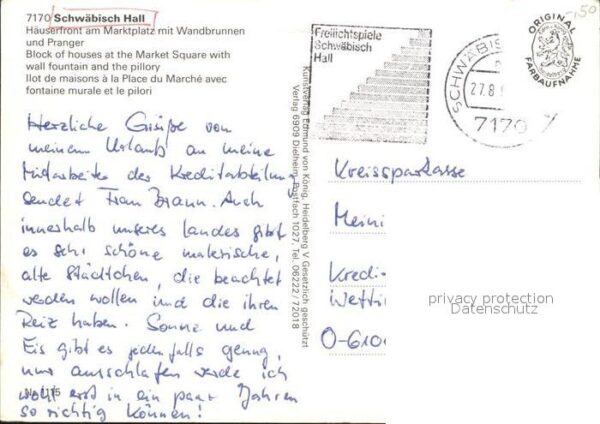 7170 Schwäbisch Hall
Häuserfront am Marktplatz mit Wandbrunnen
und Pranger
Block of houses at the Market Square with
wall fountain and the pillory
Ilot de maisons à la Place du Marché avec
fontaine murale et le pilori
Herzliche Grüße von
meinem Urlaub an meine
Mitarbeiter der Kreditabteilung
sendet Frau Braun. Auch
innerhalb unseres Landes gibt
es sehr schöne malerische,
alte Städtchen, die beachtet
werden wollen und die ihren
Reiz haben. Sonne und
Eis gibt es jedenfalls genug,
nur ausschlafen werde ich
wohl erst in ein paar Jahren
so richtig können!
Kunstverlag Edmund von König, Heidelberg
Verlag 6909 Dielheim, Postfach 1027, Tel. 06222/72018
Gesetzlich geschützt
Freilichtspiele
Schwäbisch
Hall
SCHWÄBIS
27.8.
7170
ORIGINAL
FARBAUFNAHME
Kreissparkasse
Meini
Kredi
Wetti
O-610
privacy protection
Datenschutz